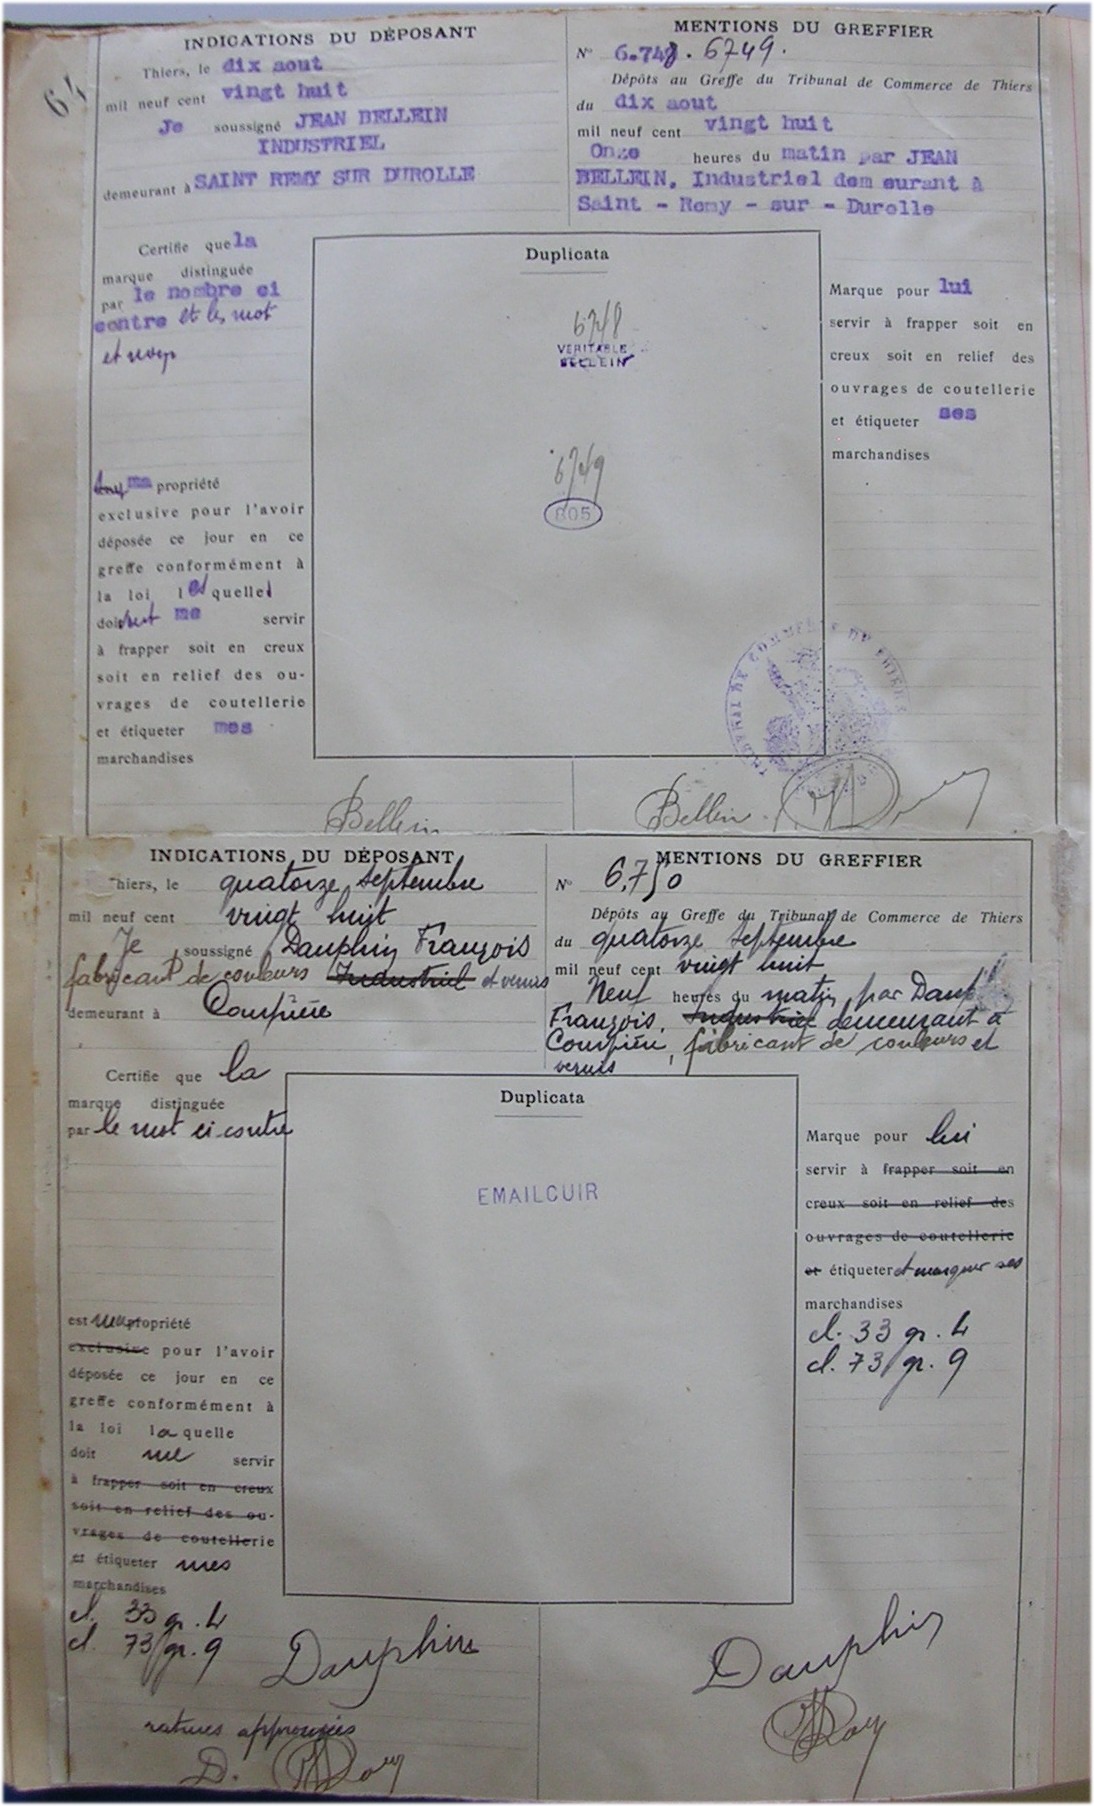 64
INDICATIONS DU DÉPOSANT
Thiers, le dix aout
mil neuf cent vingt huit
Je soussigné JEAN BELLEIN
INDUSTRIEL
demeurant à SAINT REMY SUR DUROLLE
MENTIONS DU GREFFIER
N° 6.748. 6749.
Dépôts au Greffe du Tribunal de Commerce de Thiers
du dix aout
mil neuf cent vingt huit
Onze heures du matin par JEAN
BELLEIN, Industriel dem eurant à
Saint - Remy - sur - Durolle
Certifie que la
marque distinguée
par le nombre ci
contre et les mot
propriété
exclusive pour l'avoir
déposée ce jour en ce
greffe conformément à
la loi lesquelles
doivent me servir
à frapper soit en creux
soit en relief des ou-
vrages de coutellerie
et étiqueter mes
marchandises
Duplicata
6748
VERITABLE
BELLEIN
6749
805
Marque pour lui
servir à frapper soit en
creux soit en relief des
ouvrages de coutellerie
et étiqueter ses
marchandises
TRIBUNAL DE COMMERCE DE THIERS
Bellein
Bellein
INDICATIONS DU DÉPOSANT
Thiers, le quatorze Septembre
mil neuf cent vingt huit
Je soussigné Dauphin François
fabricant de couleurs Industriel et vernis
demeurant à Courpière
MENTIONS DU GREFFIER
N° 6,750
Dépôts au Greffe du Tribunal de Commerce de Thiers
du quatorze Septembre
mil neuf cent vingt huit
Neuf heures du matin par Dauph
François, Industriel demeurant à
Courpière, fabricant de couleurs et
vernis
Certifie que la
marque distinguée
par le mot ci contre
est ma propriété
exclusive pour l'avoir
déposée ce jour en ce
greffe conformément à
la loi laquelle
doit me servir
à frapper soit en creux
soit en relief des ou-
vrages de coutellerie
et étiqueter mes
marchandises
cl. 33 gr. 4
cl. 73 gr. 9
Duplicata
EMAILCUIR
Marque pour lui
servir à frapper soit en
creux soit en relief des
ouvrages de coutellerie
et étiqueter et marquer ses
marchandises
cl. 33 gr. 4
cl. 73 gr. 9
Dauphin
Dauphin
ratures approuvées
D.